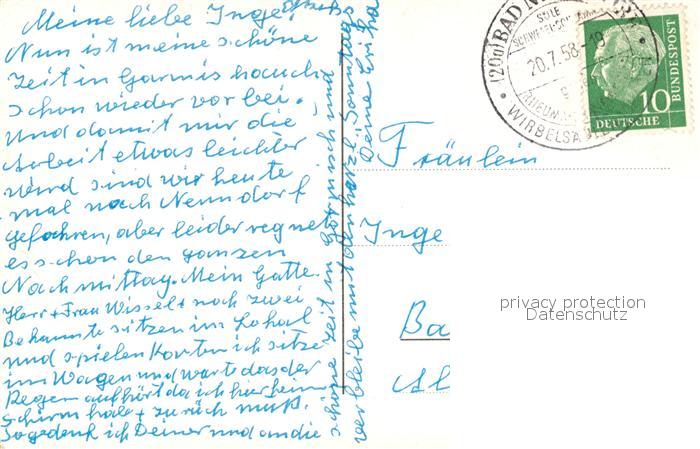 Meine liebe Inge
Nun ist meine schöne
Zeit in Garmisch auch
schon wieder vorbei.
Und damit mir die
Arbeit etwas leichter
wird sind wir heute
mal nach Nenndorf
gefahren, aber leider regnet
es schon den ganzen
Nachmittag. Mein Gatte.
Herr + Frau Wissel + noch zwei
Bekannte sitzen im Lokal
und spielen Karten ich sitze
im Wagen und warte das der
Regen aufhört da ich hier keinen
Schirm habe + zurück muß.
So gedenk ich Deiner und an die
schöne Zeit in Garmisch und
verbleibe mit den herzl. Sonntags
Deine Erika
(20a) BAD
SOLE
20.7.58
WIRBELSÄULE
10
DEUTSCHE
BUNDESPOST
Fräulein
Inge
Ba
privacy protection
Datenschutz